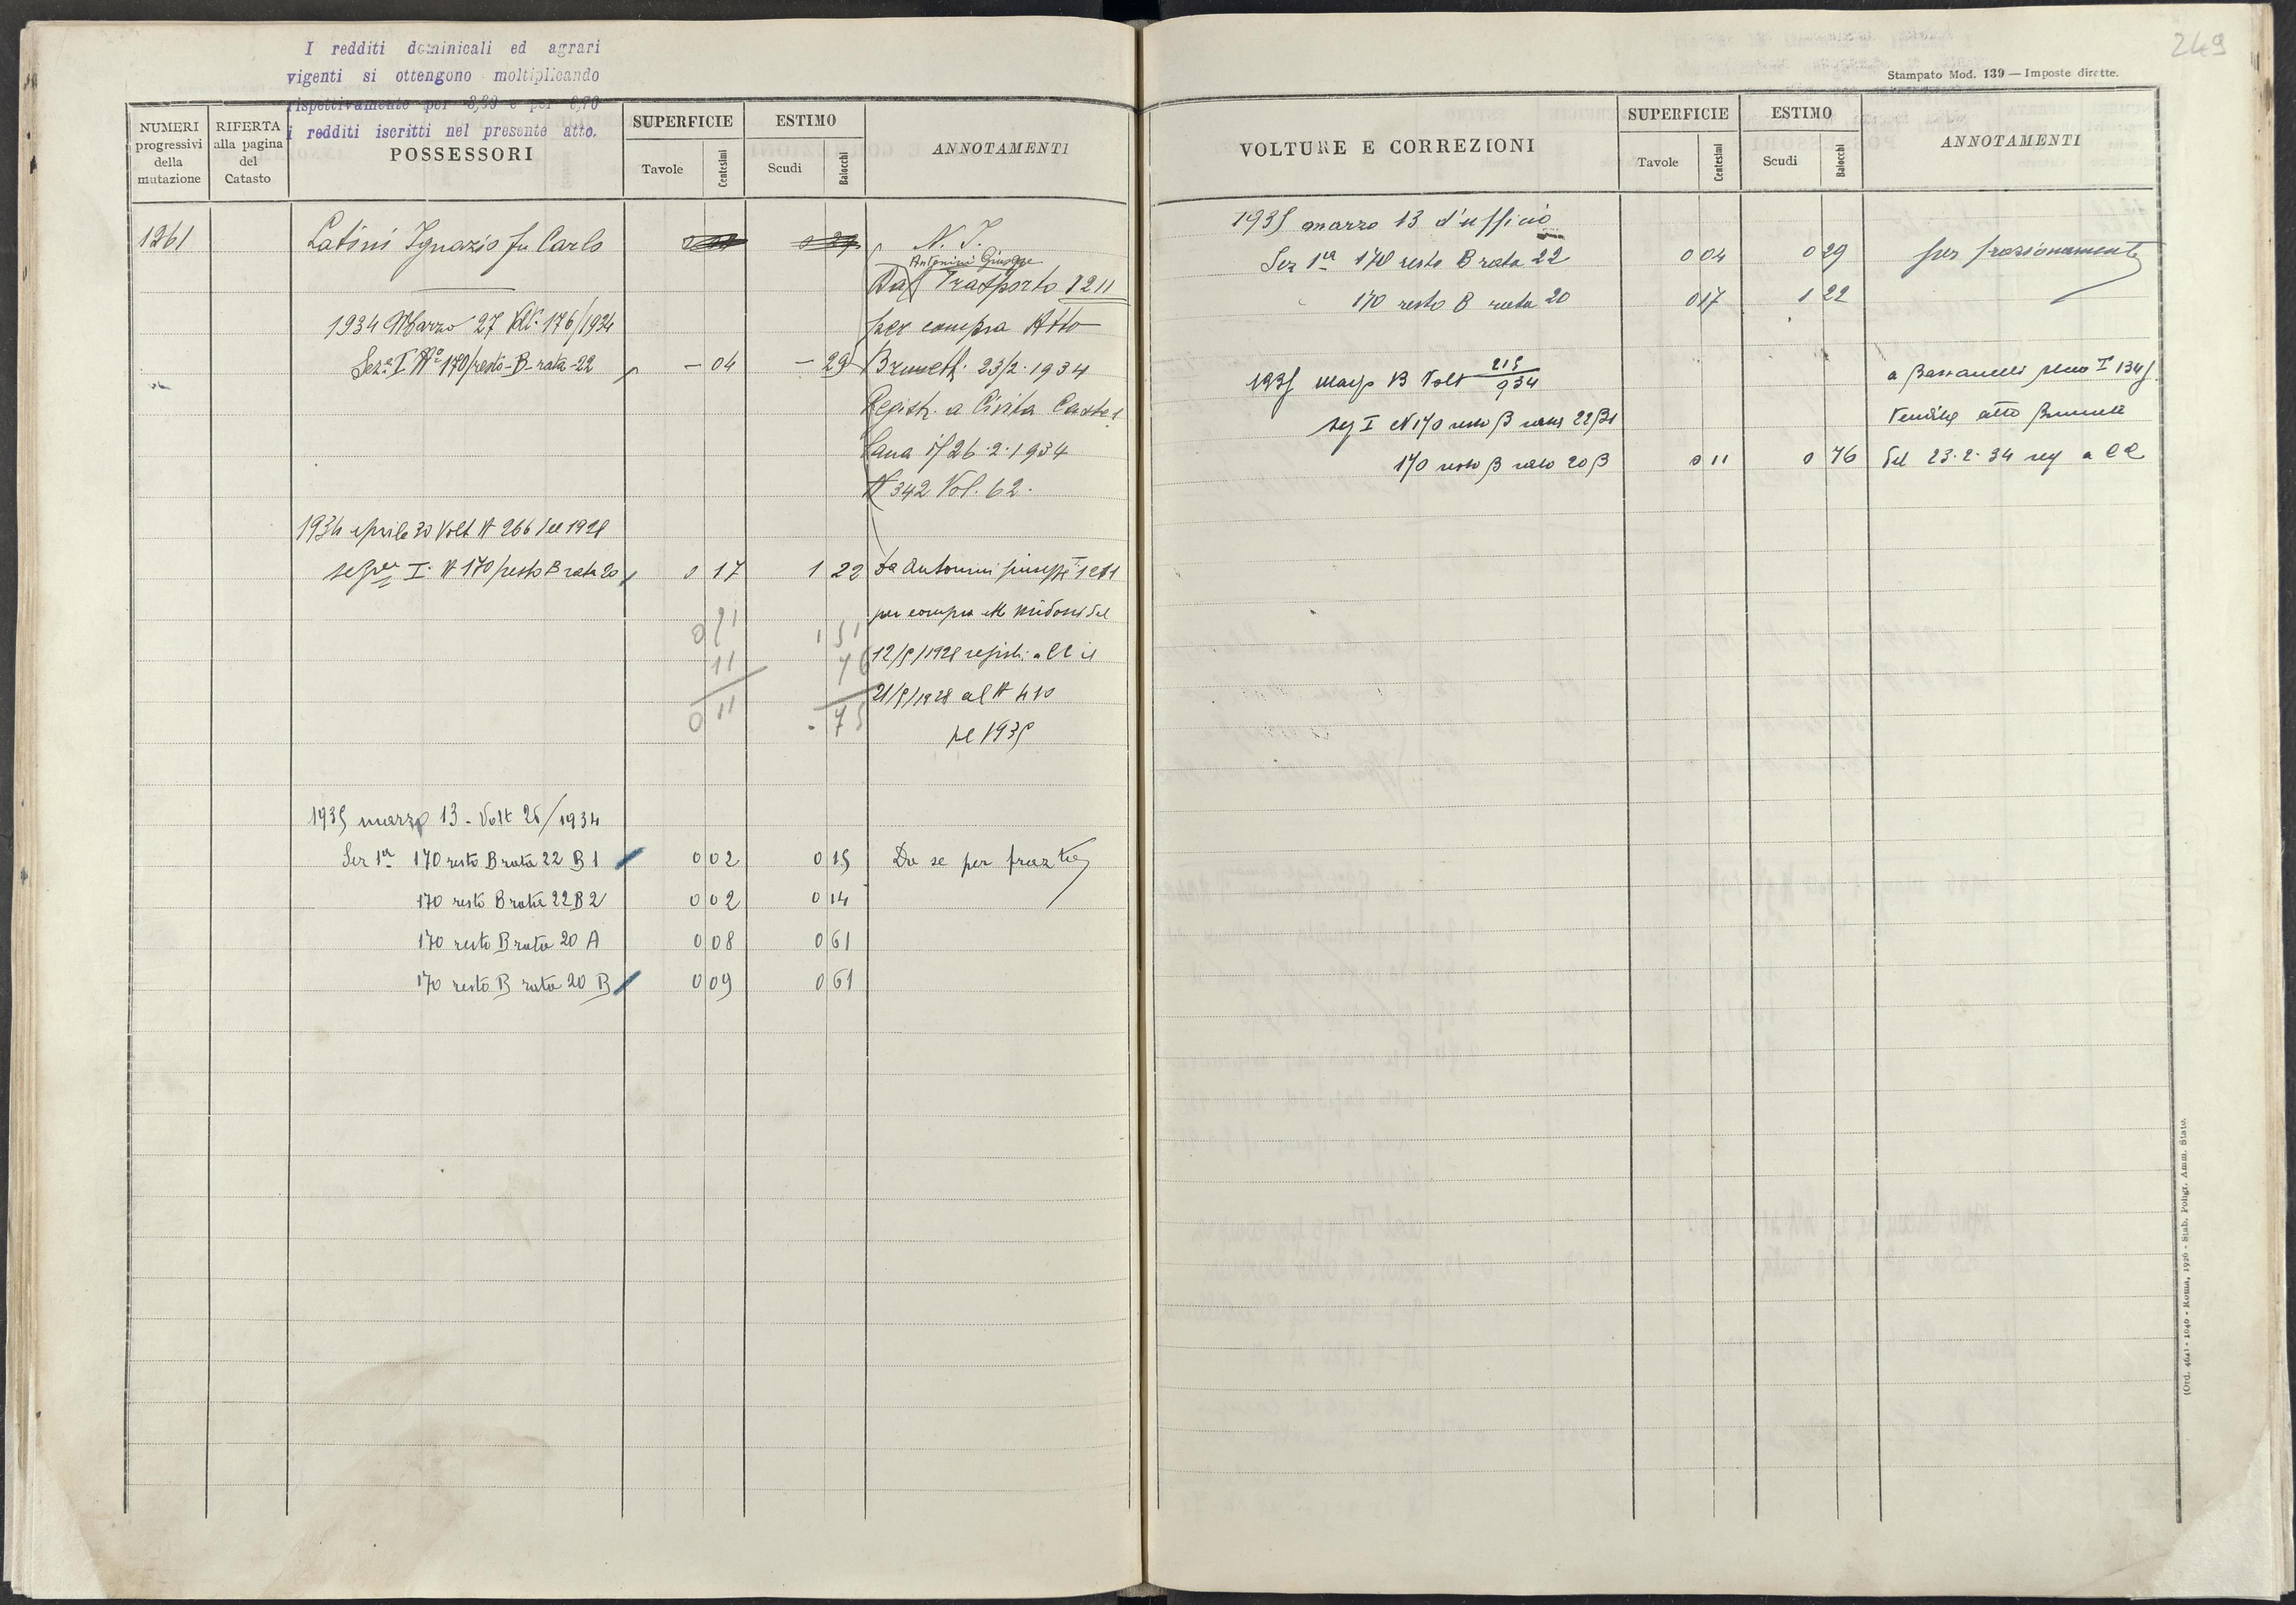 I redditi dominicali ed agrari
vigenti si ottengono moltiplicando
rispettivamente per
i redditi iscritti nel presente atto.
NUMERI progressivi della mutazione
RIFERTA alla pagina del Catasto
POSSESSORI
SUPERFICIE
Tavole
Centesimi
ESTIMO
Scudi
Baiocchi
ANNOTAMENTI
1261 Latini Ignazio fu Carlo N. T.
Antonini Giuseppe
Da Trasporto 1211
1934 Marzo 27 Vol. 176/1934 per compra Atto
Sez.e I Nº 170/resto-B-rata-22 – 04 – 29 Brunetti 23/2.1934
Registr. a Civita Castel
lana il 26.2.1934
N 342 Vol. 62.
1934 aprile 30 Volt N 266 del 1928
I. N 170/resto B rata 20 0 17 1 22 Da Antonini Giuseppe 1211
per compra
0 21 1 51
12/5/1928 registr. a CC il
11 76
21/5/1928 al N 410
0 11 . 75
pel 1935
1935 marzo 13 - Volt 26/1934
Sez 1ª 170 resto B rata 22 B 1 0 02 0 15 Da se per fraz
170 resto B rata 22 B 2 0 02 0 14
170 resto B rata 20 A 0 08 0 61
170 resto B rata 20 B 0 09 0 61
249
Stampato Mod. 139 — Imposte dirette.
VOLTURE E CORREZIONI
SUPERFICIE
Tavole
Centesimi
ESTIMO
Scudi
Baiocchi
ANNOTAMENTI
1935 marzo 13 d'ufficio
Sez 1ª 170 resto B rata 22 0 04 0 29 per frazionamento
170 resto B rata 20 0 17 1 22
1935 13 Volt 215/934 a
I N 170 resto B rata 22 B1 vendita atto Brunetti
170 resto B rata 20 B 0 11 0 76 del 23.2.34 reg a CC
(Ord. 464) - 1040 - Roma, 1926 - Stab. Poligr. Amm. Stato.